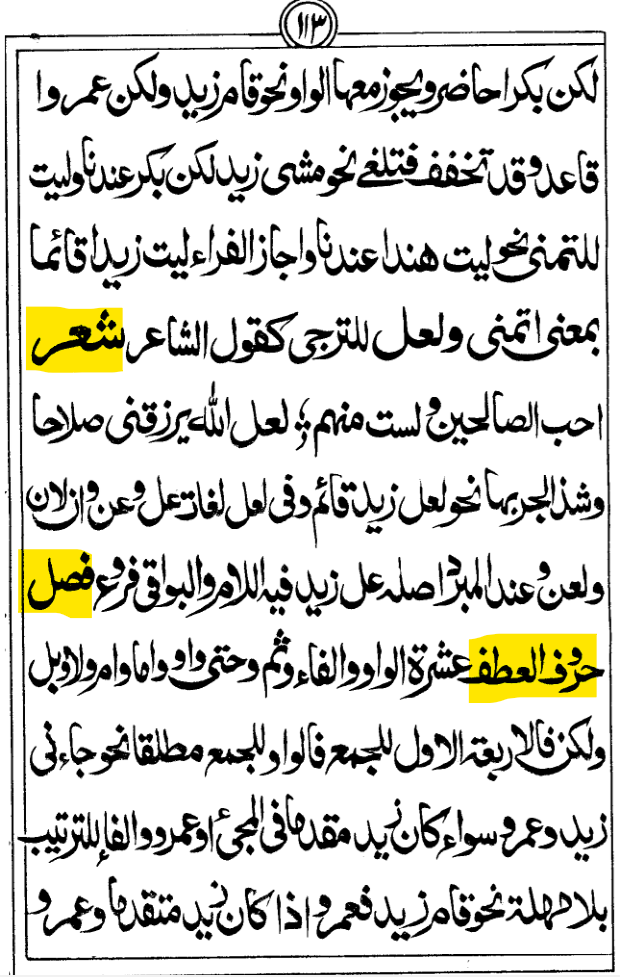 ١١٣
لكن بكرا حاضر ويجوز معها الواو نحو قام زيد ولكن عمروا
قاعد وقد تخفف فتلغى نحو مشى زيد لكن بكر عندنا وليت
للتمنى نحو ليت هندا عندنا واجاز الفراء ليت زيدا قائما
بمعنى اتمنى ولعل للترجى كقول الشاعر شعر
احب الصالحين ولست منهم ؛ لعل الله يرزقنى صلاحا
وشذ الجر بها نحو لعل زيد قائم وفى لعل لغات عل وعن وان ولان
ولعن وعند المبرد اصله عل زيد فيه اللام والبواقى فروع فصل
حروف العطف عشرة الواو والفاء وثم وحتى واو واما وام ولا وبل
ولكن فالاربعة الاول للجمع فالواو للجمع مطلقا نحو جاءنى
زيد وعمرو سواء كان زيد مقدما فى المجئ او عمرو والفاء للترتيب
بلا مهلة نحو قام زيد فعمرو اذا كان زيد متقدما وعمرو